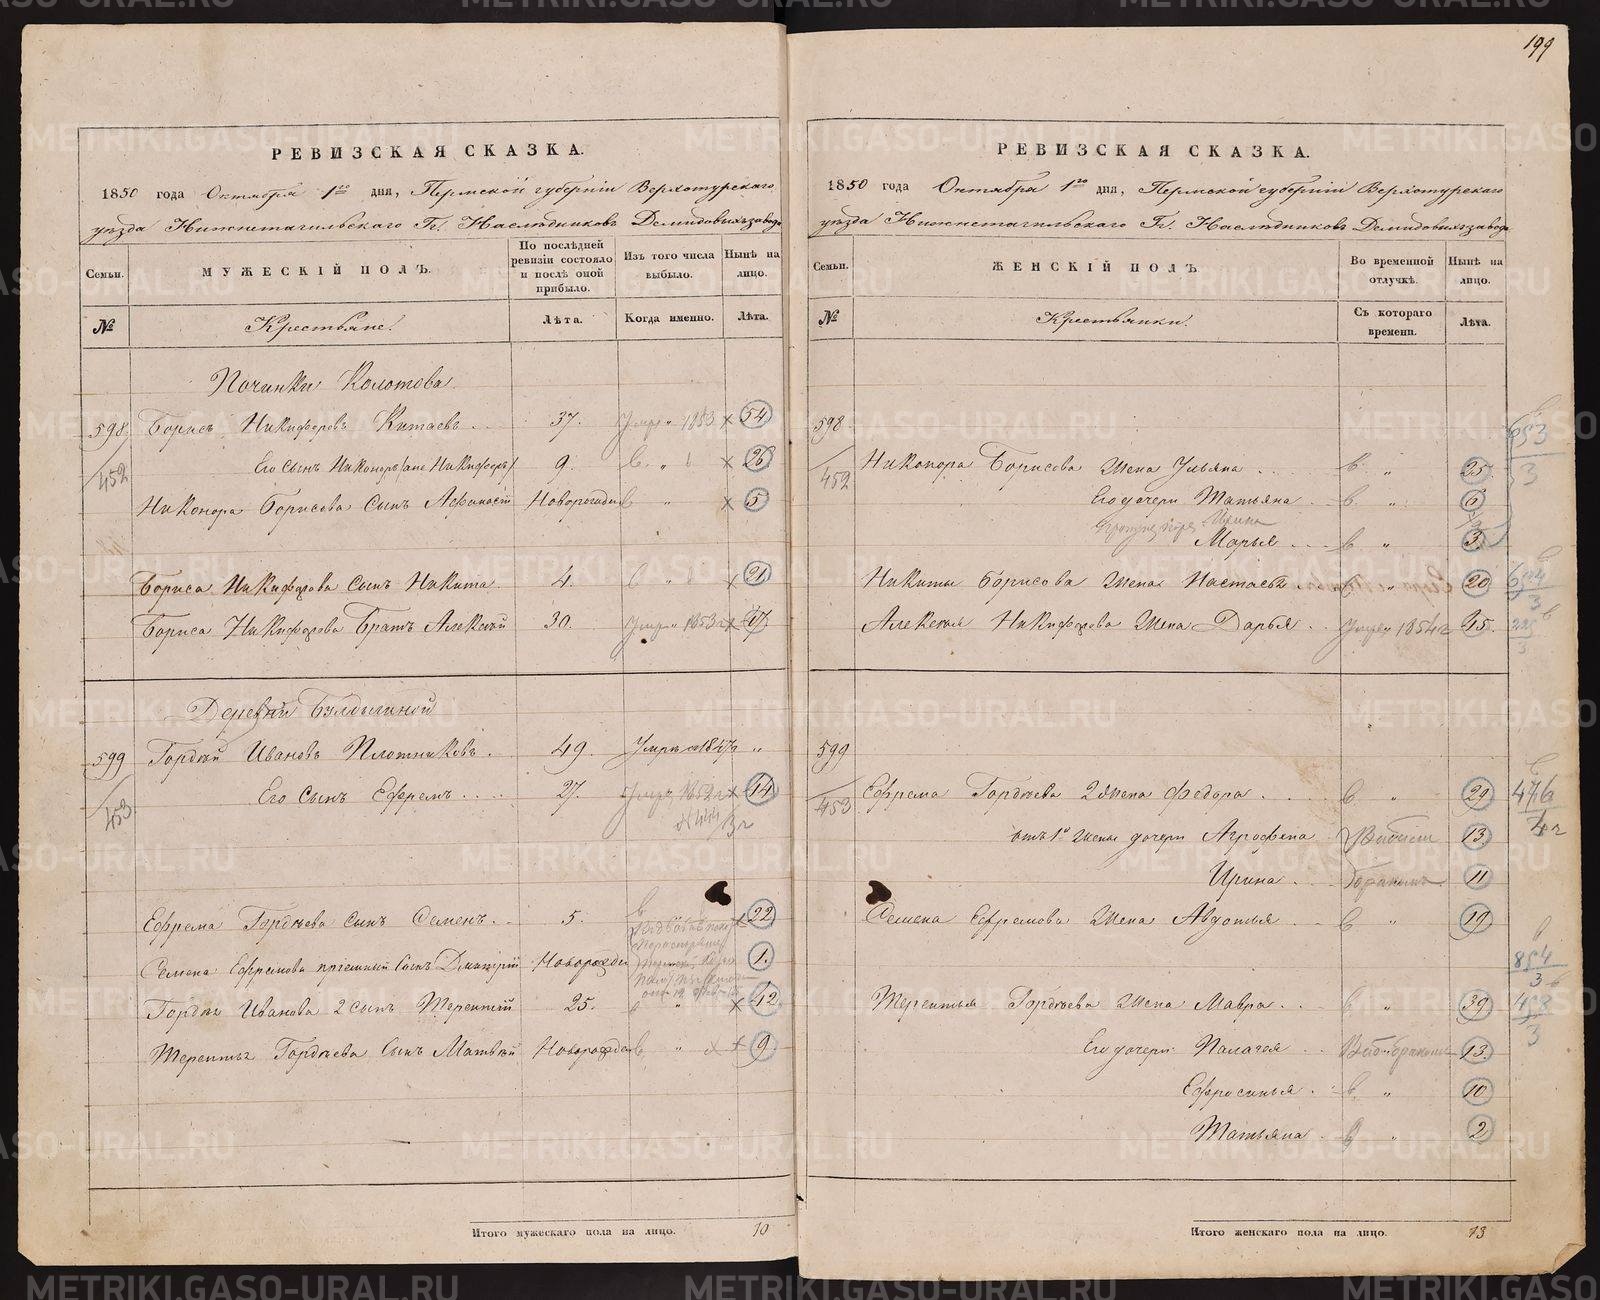 199
РЕВИЗСКАЯ СКАЗКА.
1850 года Октября 1го дня, Пермской губерніи Верхотурскаго
уѣзда Нижнетагильскаго Гг. Наслѣдниковъ Демидовыхъ завода
Семьи.
МУЖЕСКІЙ ПОЛЪ.
По послѣдней ревизіи состояло и послѣ оной прибыло.
Изъ того числа выбыло.
Нынѣ на лицо.
№
Крестьяне.
Лѣта.
Когда именно.
Лѣта.
Починки Колотова
598 Борисъ Никифоровъ Китаевъ 37. Умре 1853 × 54
452 Его сынъ Никоноръ /ане Никифоръ/ 9. в " × 26
Никонора Борисова сынъ Афонасій Новорожден в " × 5
Бориса Никифорова сынъ Никита 4. × 21
Бориса Никифорова Братъ Алексѣй 30. Умре 1853 г × 47
Деревни Булдыгиной
599 Гордѣй Ивановъ Плотниковъ. 49. Умре 1847 "
453 Его сынъ Ефремъ 27. Умре 1852 г × 44
Ефрема Гордѣева сынъ Семенъ. 5. в 22
Семена Ефремова пріемный сынъ Дмитрій Новорожден 1.
Гордѣя Иванова 2 сынъ Терентій 25. в " × 42
Терентья Гордѣева сынъ Матвѣй Новорожден в " × 9
Итого мужескаго пола на лицо. 10
РЕВИЗСКАЯ СКАЗКА.
1850 года Октября 1го дня, Пермской губерніи Верхотурскаго
уѣзда Нижнетагильскаго Гг. Наслѣдниковъ Демидовыхъ завода
Семьи.
ЖЕНСКІЙ ПОЛЪ
Во временной отлучкѣ.
Нынѣ на лицо.
№
Крестьянки.
Съ котораго времени.
Лѣта.
598
452 Никонора Борисова жена Ульяна в " 25.
Его дочери Татьяна в " 6
Ирина
Марья в " 3
Никиты Борисова жена Настасья " 20
Алексѣя Никифорова жена Дарья Умре 1854 г 45.
599
453 Ефрема Гордѣева 2 жена Федора в " 29
отъ 1й жены дочери Агрофена 13
Ирина 11
Семена Ефремова жена Авдотья в " 19
Терентья Гордѣева жена Мавра в " 39
Его дочери Палагея 13.
Ефросинья в " 10
Татьяна в " 2
653
3
654
3
476
4 г
854
3
458
3
Итого женскаго пола на лицо. 13
METRIKI.GASO-URAL.RU